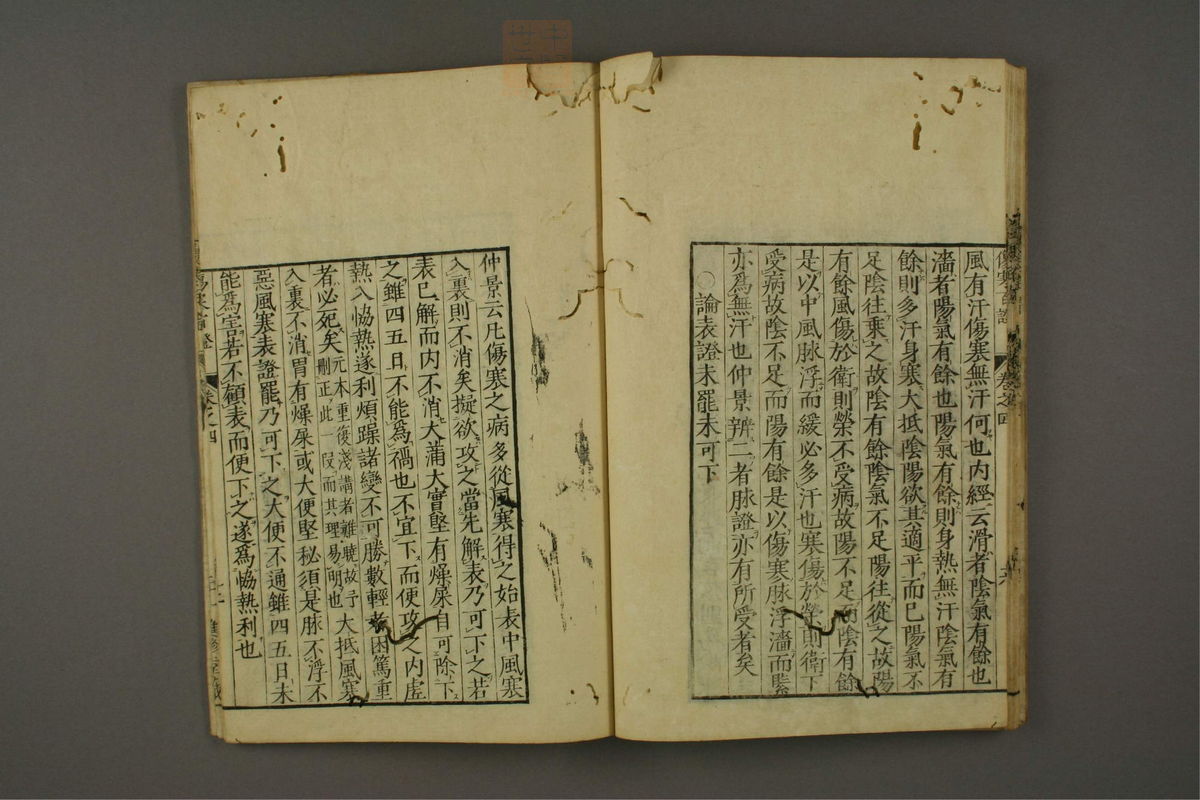 風有汗傷寒無汗何也内經云滑者陰氣有餘也
濇者陽氣有餘也陽氣有餘則身熱無汗陰氣有
餘則多汗身寒大抵陰陽欲其適平而已陽氣不
足陰往乘之故陰有餘陰氣不足陽往從之故陽
有餘風傷於衛則榮不受病故陽不足而陰有餘
是以中風脉浮而緩必多汗也寒傷於榮則衛不
受病故陰不足而陽有餘是以傷寒脉浮濇而緊
亦爲無汗也仲景辨二者脉證亦有所受者矣
○論表證未罷未可下
仲景云凡傷寒之病多從風寒得之始表中風寒
入裏則不消矣擬欲攻之當先解表乃可下之若
表已解而内不消大蒲大實堅有燥屎自可除下
之雖四五日不能爲禍也不宜下而便攻之内虛
熱入恊熱遂利煩躁諸變不可勝數輕者困篤重
者必死矣元本重復淺講者難曉故予
刪正此一叚而其理易明也大抵風寒
入裏不消胃有燥屎或大便堅秘須是脉不浮不
惡風寒表證罷乃可下之大便不通雖四五日未
能爲害若不顧表而便下之遂爲恊熱利也
卷之四
卷之四